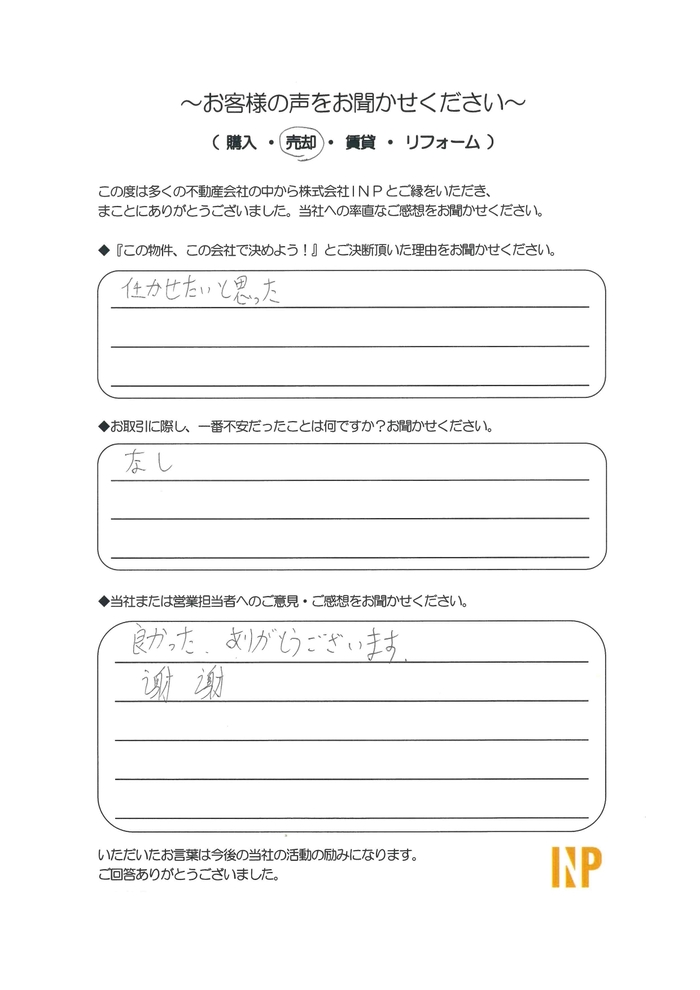 ～お客様の声をお聞かせください～
（ 購入 ・ 売却 ・ 賃貸 ・ リフォーム ）
この度は多くの不動産会社の中から株式会社ＩＮＰとご縁をいただき、
まことにありがとうございました。当社への率直なご感想をお聞かせください。
◆『この物件、この会社で決めよう！』とご決断頂いた理由をお聞かせください。
任かせたいと思った
◆お取引に際し、一番不安だったことは何ですか？お聞かせください。
なし
◆当社または営業担当者へのご意見・ご感想をお聞かせください。
良かった. ありがとうございます.
谢 谢
いただいたお言葉は今後の当社の活動の励みになります。
ご回答ありがとうございました。
INP